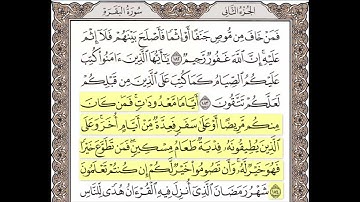 الجزء الثاني
سورة البقرة
فَمَنْ خَافَ مِن مُّوصٍ جَنَفًا أَوْ إِثْمًا فَأَصْلَحَ بَيْنَهُمْ فَلَا إِثْمَ
عَلَيْهِ إِنَّ اللَّهَ غَفُورٌ رَّحِيمٌ ١٨٢ يَا أَيُّهَا الَّذِينَ ءَامَنُوا كُتِبَ
عَلَيْكُمُ الصِّيَامُ كَمَا كُتِبَ عَلَى الَّذِينَ مِن قَبْلِكُمْ
لَعَلَّكُمْ تَتَّقُونَ ١٨٣ أَيَّامًا مَّعْدُودَاتٍ فَمَن كَانَ
مِنكُم مَّرِيضًا أَوْ عَلَى سَفَرٍ فَعِدَّةٌ مِّنْ أَيَّامٍ أُخَرَ وَعَلَى
الَّذِينَ يُطِيقُونَهُ فِدْيَةٌ طَعَامُ مِسْكِينٍ فَمَن تَطَوَّعَ خَيْرًا
فَهُوَ خَيْرٌ لَّهُ وَأَن تَصُومُوا خَيْرٌ لَّكُمْ إِن كُنتُمْ تَعْلَمُونَ
١٨٤ شَهْرُ رَمَضَانَ الَّذِي أُنزِلَ فِيهِ الْقُرْءَانُ هُدًى لِّلنَّاسِ